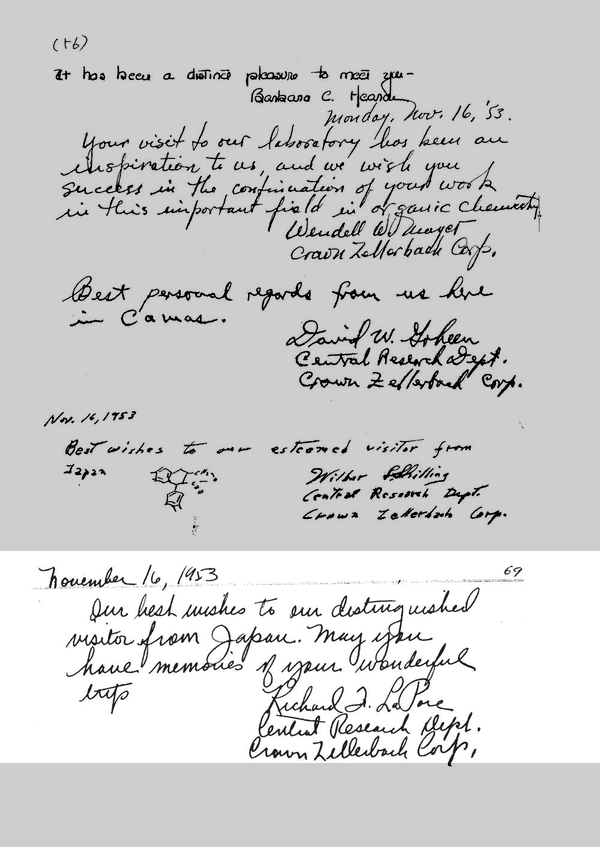 (56)
It has been a distinct pleasure to meet you—
Barbara C. Hearde
Monday, Nov. 16, '53.
Your visit to our laboratory has been an
inspiration to us, and we wish you
success in the continuation of your work
in this important field in organic chemistry.
Wendell W. Moyer
Crown Zellerbach Corp.
Best personal regards from us here
in Camas.
David W. Goheen
Central Research Dept.
Crown Zellerbach Corp.
Nov. 16, 1953
Best wishes to our esteemed visitor from
Japan
Wilbur Shilling
Central Research Dept.
Crown Zellerbach Corp.
69
November 16, 1953
Our best wishes to our distinguished
visitor from Japan. May you
have memories of your wonderful
trip
Richard F. LaPore
Central Research Dept.
Crown Zellerbach Corp.